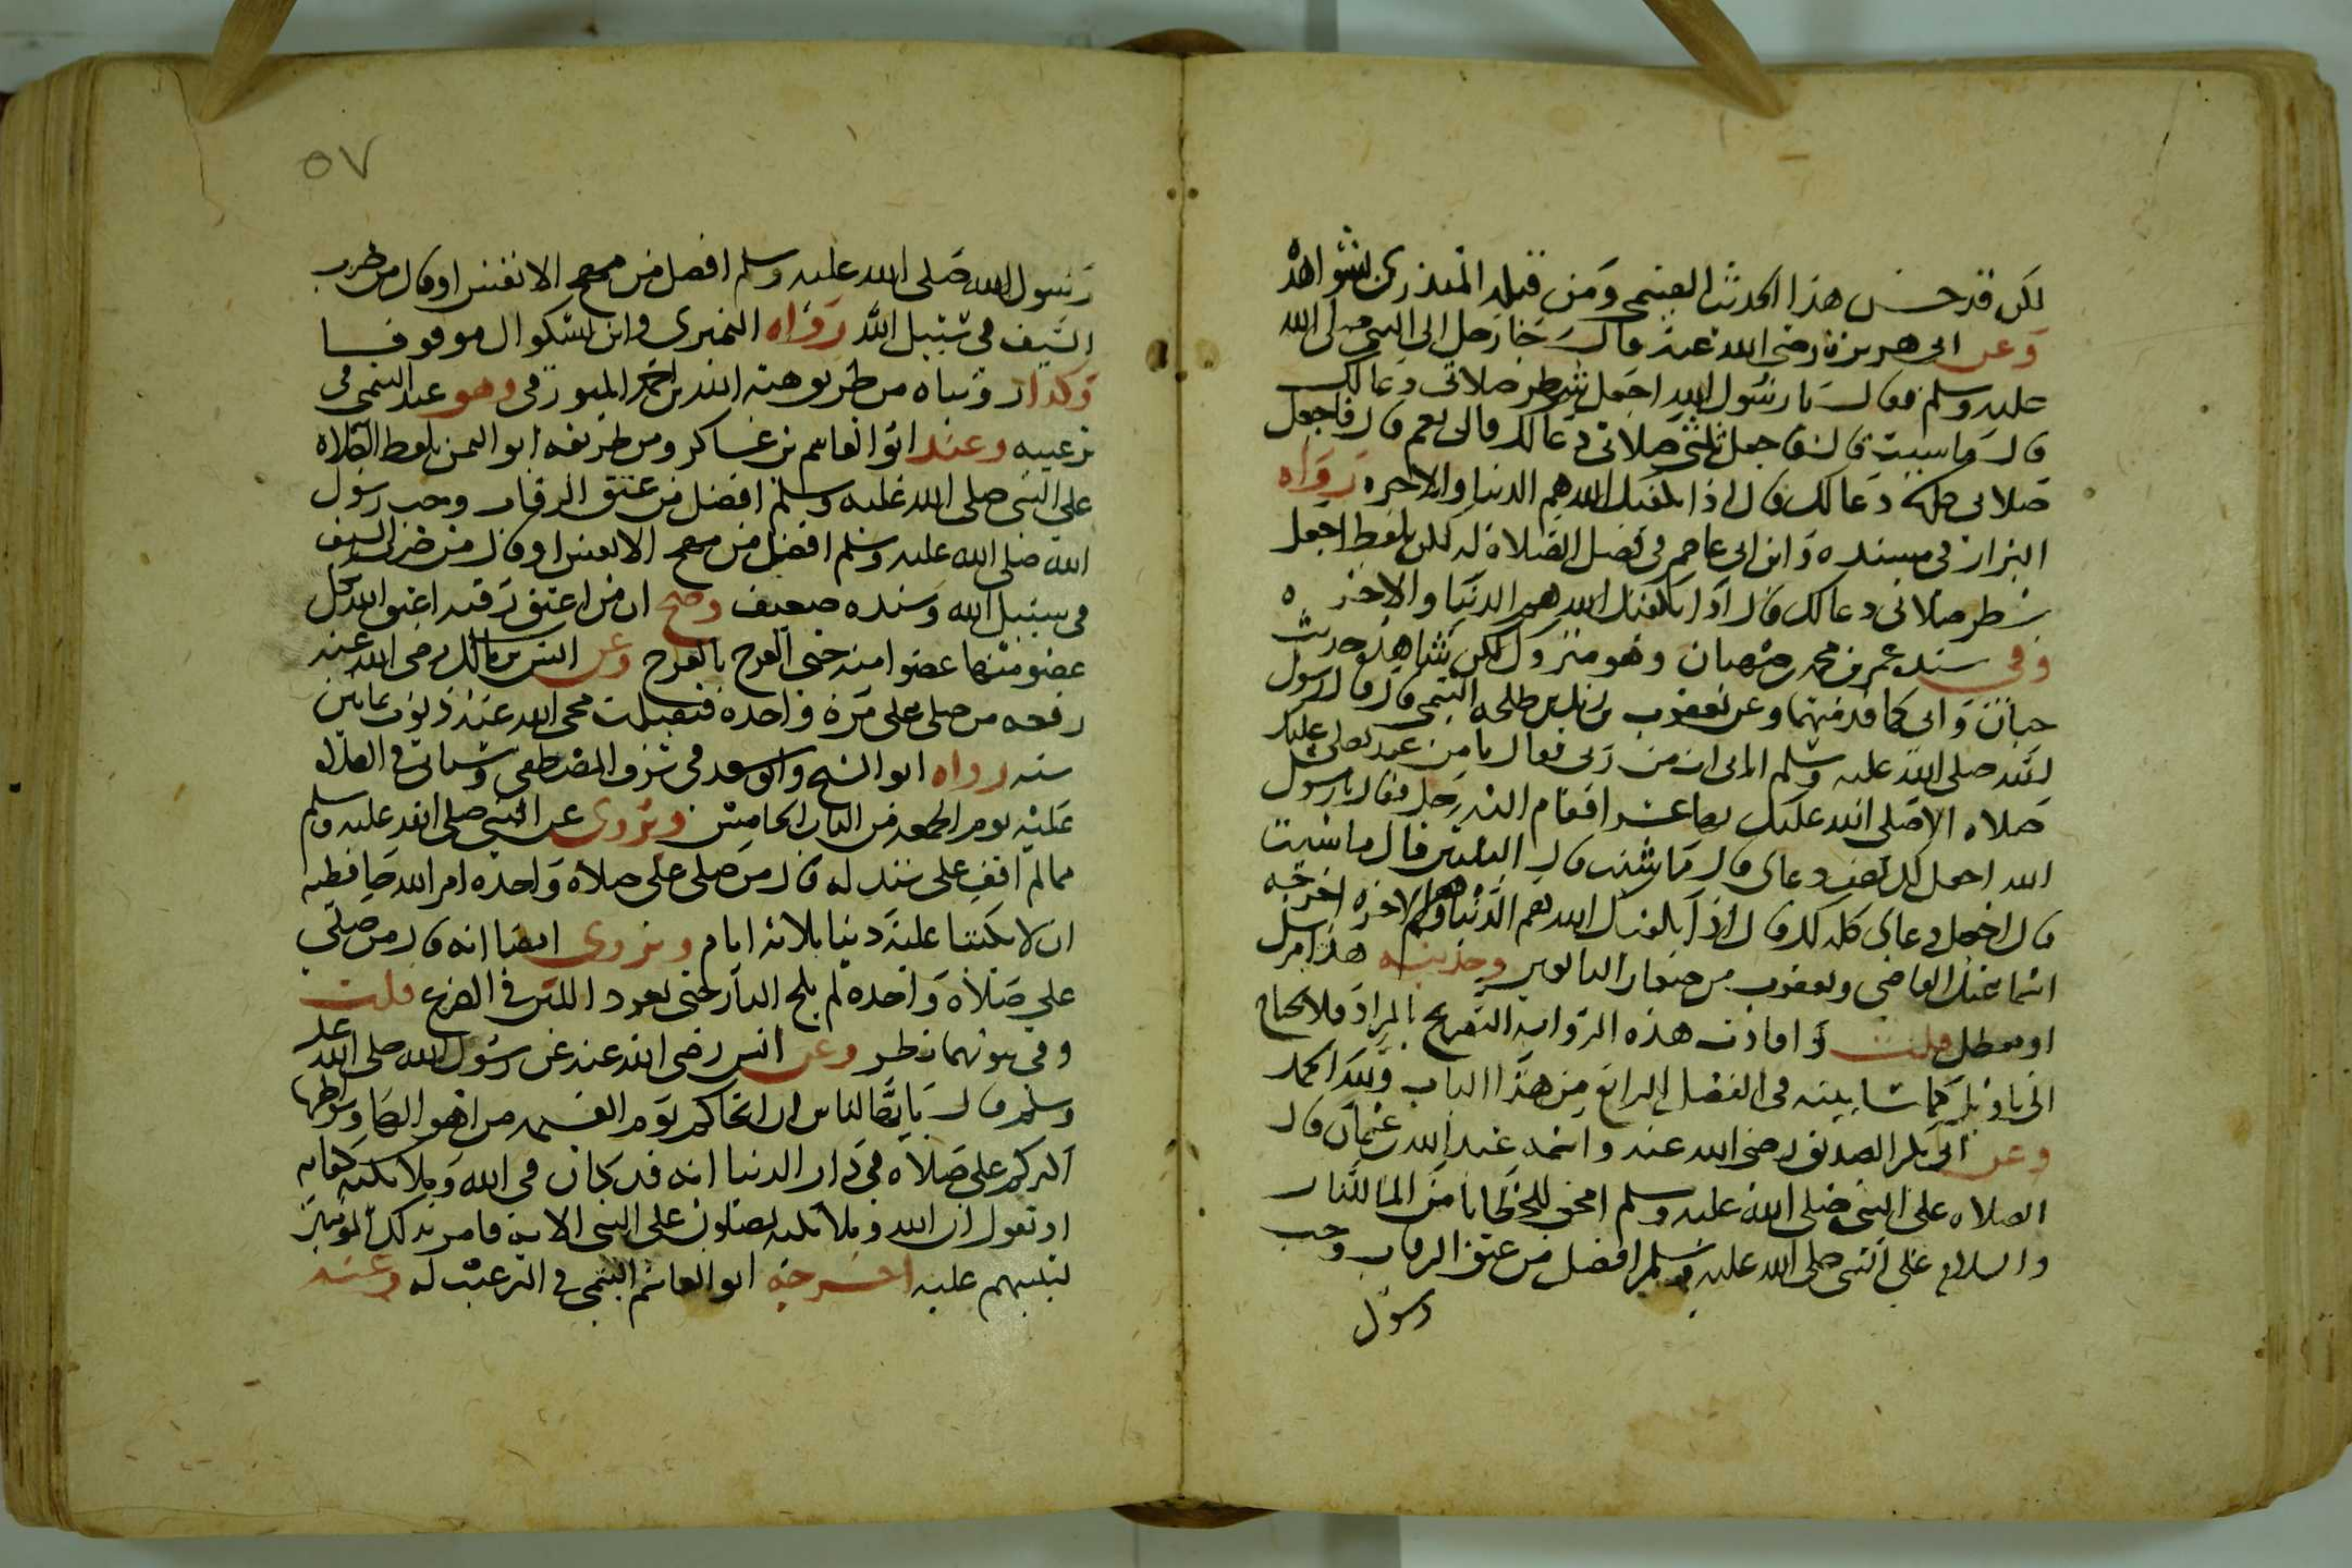 لكن قد حسن هذا الحديث الهيتمي ومن قبله المنذري بشواهده
وعن ابى هريرة رضى الله عنه قال جا رجل الى النبى صلى الله
عليه وسلم فقال يا رسول الله اجعل شطر صلاتى دعا لك
قال ما شيت قال فاجعل ثلثى صلاتى دعا لك قال نعم قال فاجعل
صلاتى كلها دعا لك قال اذا يكفيك الله هم الدنيا والاخره رواه
البزار فى مسنده وابن ابى عاصم فى فضل الصلاة له لكن بلفظ اجعل
شطر صلاتى دعا لك قال اذا يكفيك الله هم الدنيا والاخره
وفى سنده عمر بن محمد بن صهبان وهو متروك لكن شاهده حديث
حبان وابى كما قدمتهما وعن يعقوب بن زيد بن طلحه التيمى قال قال رسول
الله صلى الله عليه وسلم اتانى ات من ربى فقال ما من عبد يصلى عليك
صلاه الا صلى الله عليك بها عشرا فقام اليه رجل فقال يا رسول
الله اجعل لك نصف دعاى قال ما شيت قال الثلثين قال ما شيت
قال اجعل دعاى كله لك قال اذا يكفيك الله هم الدنيا وهم الاخره اخرجه
اسماعيل القاضى ويعقوب من صغار التابعين وحديثه هذا مرسل
او معضل قلت وافادت هذه الروايه التصريح بالمراد فلا يحتاج
الى تاويل كما سابينه فى الفصل الرابع من هذا الباب ولله الحمد
وعن ابى بكر الصديق رضى الله عنه واسمه عبد الله بن عثمان قال
الصلاه على النبى صلى الله عليه وسلم امحق للخطايا من الما للنار
والسلام على النبى صلى الله عليه وسلم افضل من عتق الرقاب وحب
رسول
٥٧
رسول الله صلى الله عليه وسلم افضل من مهج الانفس او قال من ضرب
السيف فى سبيل الله رواه النميرى وابن بشكوال موقوفا
وكذا رويناه من طريق هبة الله بن احمد الميورقى وهو عند التيمى فى
ترغيبه وعند ابو القاسم بن عساكر ومن طريقه ابو اليمن بلفظ الصلاه
على النبى صلى الله عليه وسلم افضل من عتق الرقاب وحب رسول
الله صلى الله عليه وسلم افضل من مهج الانفس او قال من ضرب السيف
فى سبيل الله وسنده ضعيف وصح ان من اعتق رقبه اعتق الله بكل
عضو منها عضوا منه حتى الفرج بالفرج وعن انس بن مالك رضى الله عنه
رفعه من صلى على مرة واحدة فتقبلت محى الله عنه ذنوب ثمانين
سنه رواه ابو الشيخ وابو سعد فى شرف المصطفى وسياتى فى الصلاه
عليه يوم الجمعه من الباب الخامس ويروى عن النبى صلى الله عليه وسلم
مما لم اقف على سنده انه قال من صلى على صلاة واحده امر الله حافظيه
ان لا يكتبا عليه ذنبا ثلاثة ايام ويروى ايضا انه قال من صلى
على صلاة واحده لم يلج النار حتى يعود اللبن فى الضرع قلت
وفى ثبوتهما نظر وعن انس رضى الله عنه عن رسول الله صلى الله عليه
وسلم قال يا ايها الناس ان انجاكم يوم القيمه من اهوالها ومواطنها
اكثركم على صلاة فى دار الدنيا انه قد كان فى الله وملائكته كفايه
اذ يقول ان الله وملائكته يصلون على النبى الايه فامر بذلك المومنين
ليثيبهم عليه اخرجه ابو القاسم التيمى فى الترغيب له وعنه